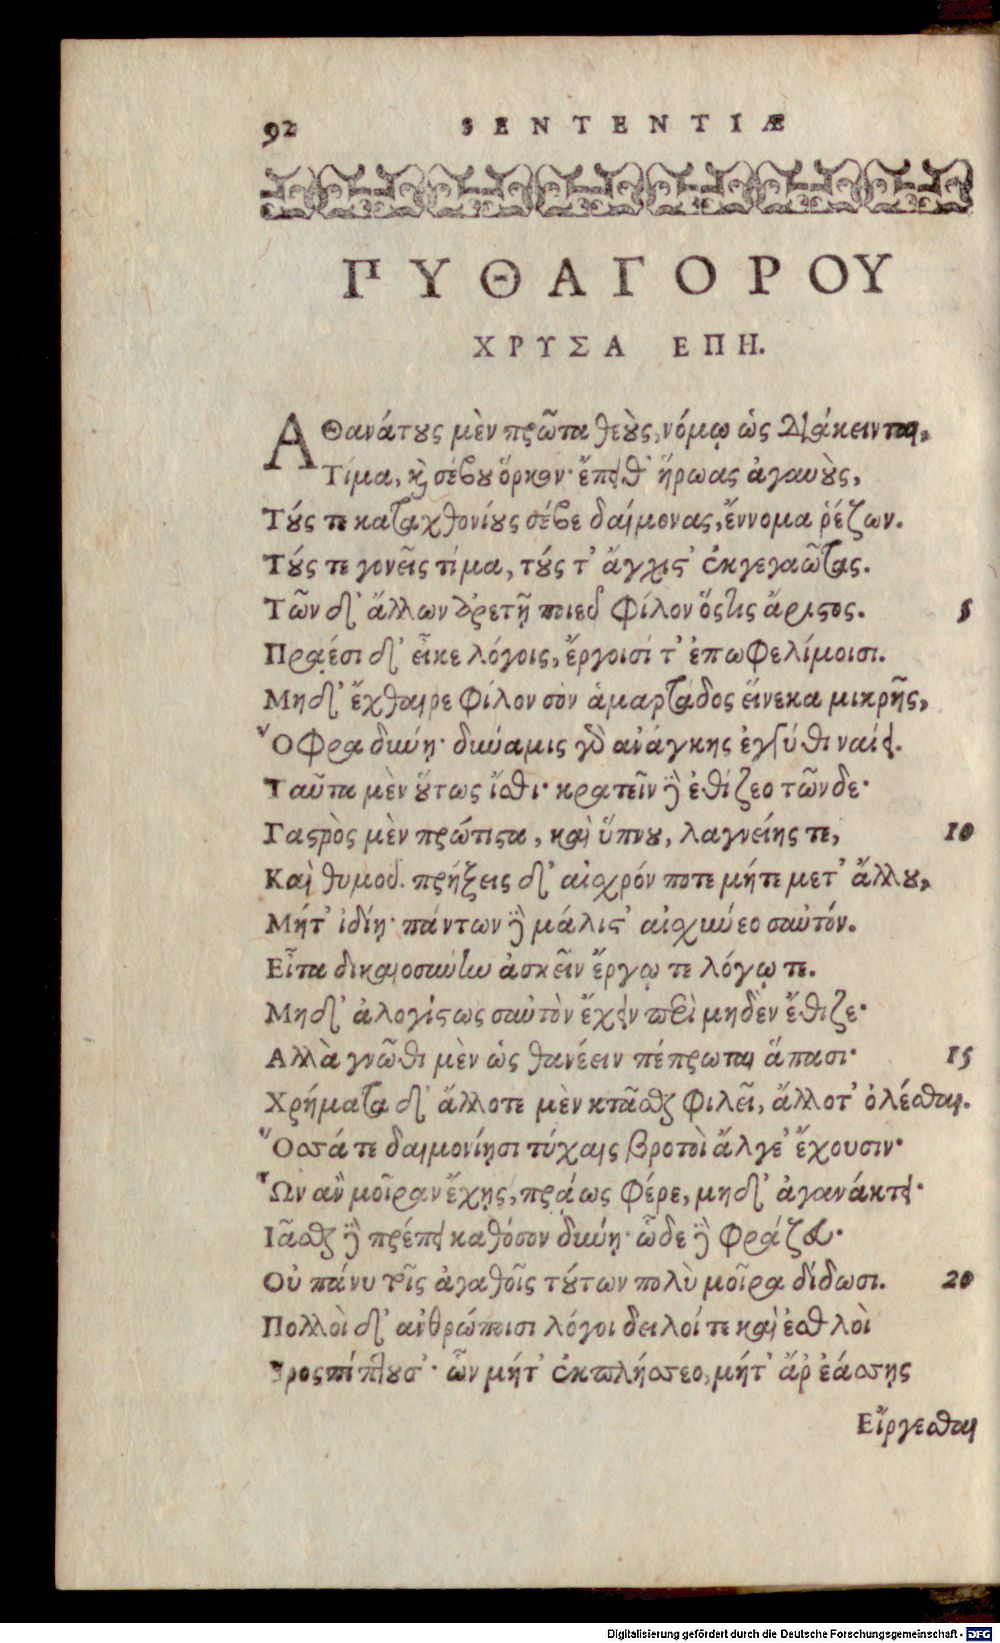 92 SENTENTIÆ
ΠΥΘΑΓΟΡΟΥ
ΧΡΥΣΑ ΕΠΗ.
ΑΘανάτȣς μὲν πρῶτα θεȣ̀ς, νόμῳ ὡς διάκεινται,
Τίμα, κὶ σέβȣ ὅρκον· ἔπειθ' ἥρωας ἀγαυȣ̀ς,
Τȣ́ς τε καταχθονίȣς σέβε δαίμονας, ἔννομα ῥέζων.
Τȣ́ς τε γονεῖς τίμα, τȣ́ς τ' ἄγχις' ἐκγεγαῶτας.
Τῶν δ' ἄλλων ἀρετῇ ποιεῦ φίλον ὅςτις ἄριςος. 5
Πραέσι δ' εἶκε λόγοις, ἔργοισί τ' ἐπωφελίμοισι.
Μηδ' ἔχθαιρε φίλον σὸν ἁμαρτάδος εἵνεκα μικρῆς,
Ὄφρα δύνῃ· δύναμις γδ ἀνάγκης ἐγγύθι ναίει.
Ταῦτα μὲν ȣ́̔τως ἴσθι· κρατεῖν δὲ ἐθίζεο τῶνδε·
Γαςρὸς μὲν πρώτιςα, καὶ ὕπνȣ, λαγνείης τε, 10
Καὶ θυμοῦ. πρήξεις δ' αἰσχρόν ποτε μήτε μετ' ἄλλȣ,
Μήτ' ἰδίῃ· πάντων δὲ μάλις' αἰσχύνεο σαυτόν.
Εἶτα δικαιοσύνην ἀσκεῖν ἔργῳ τε λόγῳ τε.
Μηδ' ἀλογίςως σαυτὸν ἔχειν περὶ μηδὲν ἔθιζε·
Αλλὰ γνῶθι μὲν ὡς θανέειν πέπρωται ἅπασι· 15
Χρήματα δ' ἄλλοτε μὲν κτᾶσθαι φιλεῖ, ἄλλοτ' ὀλέσθαι.
Ὅσσά τε δαιμονίῃσι τύχαις βροτοὶ ἄλγε' ἔχουσιν·
Ὧν ἂν μοῖραν ἔχῃς, πράως φέρε, μηδ' ἀγανάκτει·
Ιᾶσθαι δὲ πρέπει καθόσον δύνῃ· ὧδε δὲ φράζευ·
Οὐ πάνυ τοῖς ἀγαθοῖς τȣ́των πολὺ μοῖρα δίδωσι. 20
Πολλοὶ δ' ἀνθρώποισι λόγοι δειλοί τε καὶ ἐσθλοὶ
Προςπίπτȣσ'· ὧν μήτ' ἐκπλήσσεο, μήτ' ἄρ' ἐάσσῃς
Εἴργεσθαι
Digitalisierung gefördert durch die Deutsche Forschungsgemeinschaft - DFG